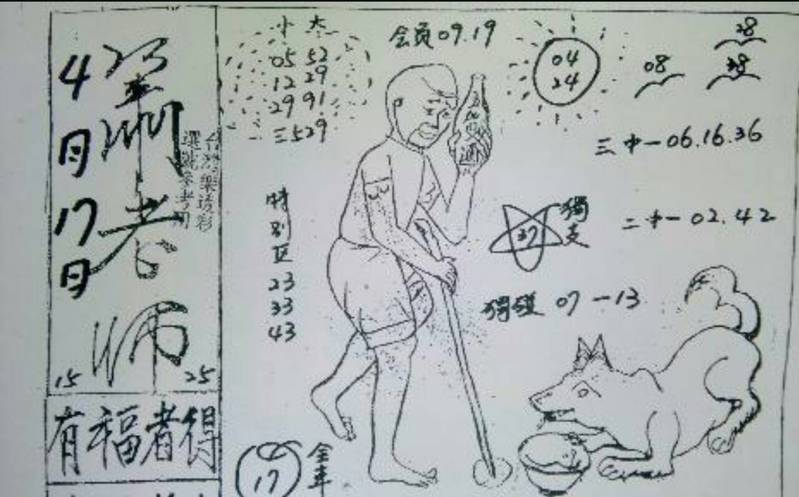 4月17日
蕭老师
台灣樂透彩
選號參考用
15 25
有福者得
小 大
05 52
12 29
29 91
三529
会员09.19
04
24
28
08 38
三中一06.16.36
特别区
23
33
43
37
獨支
二中一02.42
07-13
17